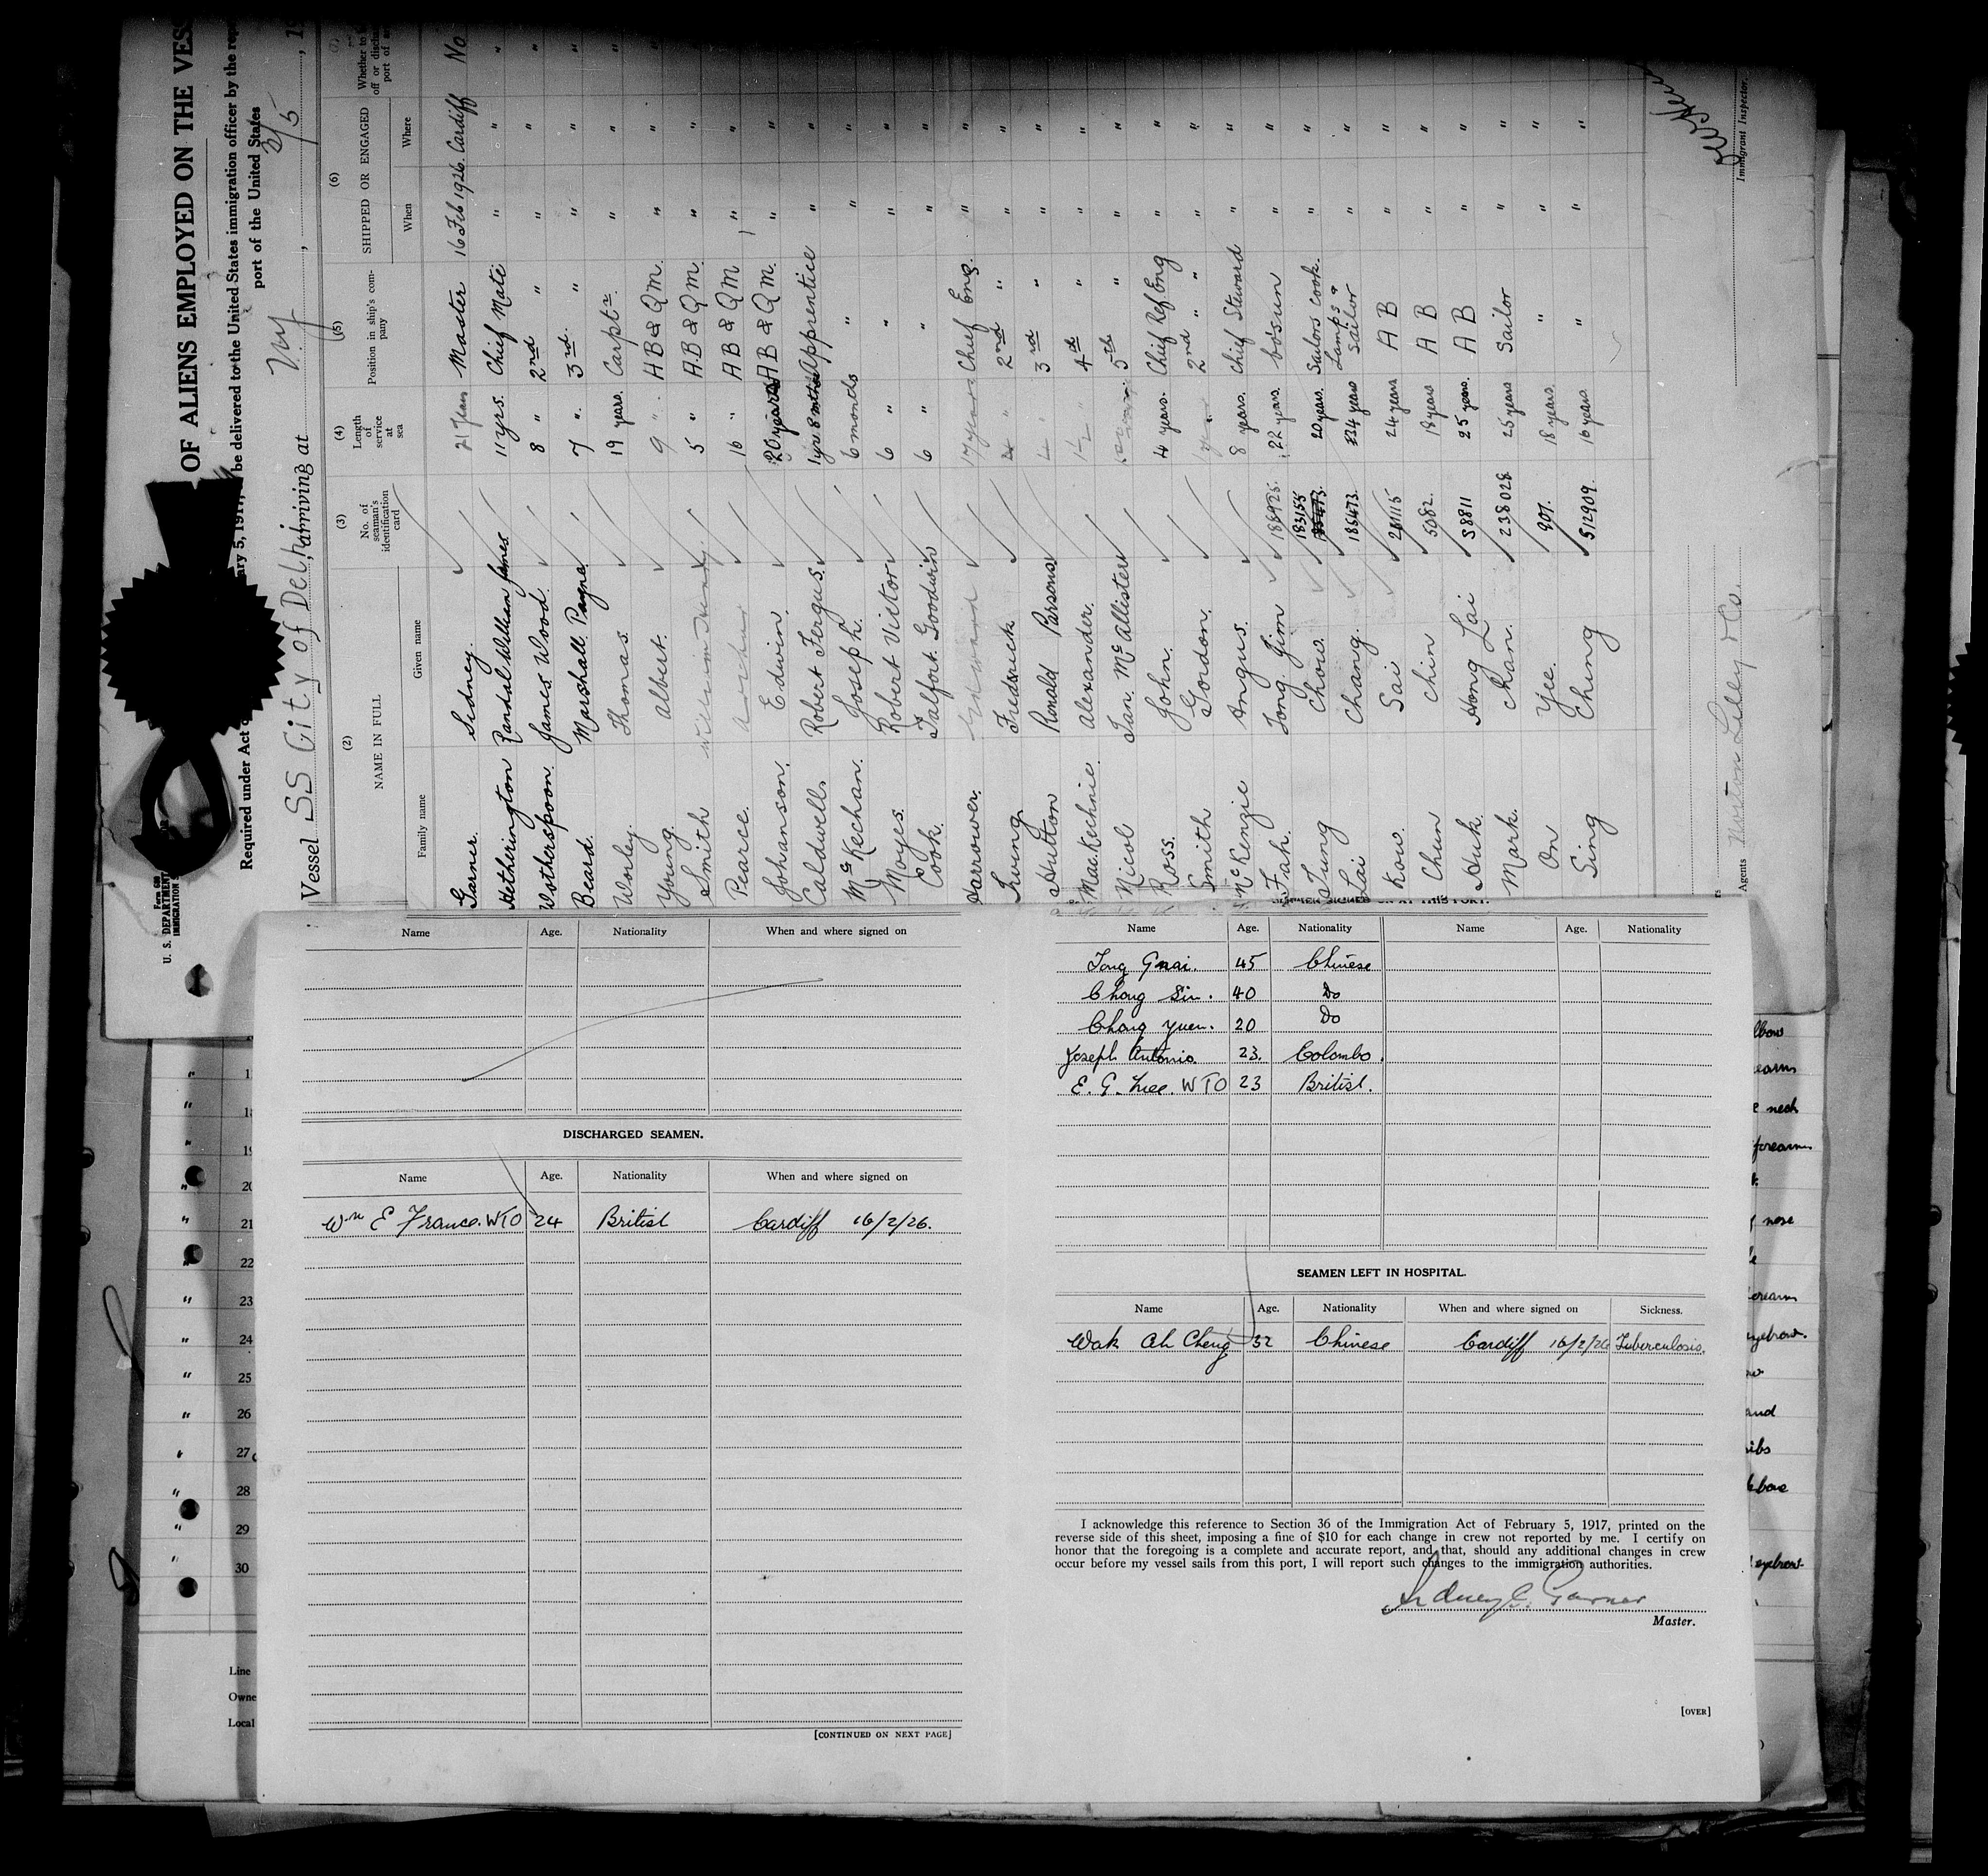 OF ALIENS EMPLOYED ON THE VESS
Required under Act
ary 5, 1917,
be delivered to the United States immigration officer by the rep
port of the United States
Vessel SS City of Delhi, arriving at NY 3/5, 19
U. S. DEPARTMENT
(2) (3) (4) (5) (6)
NAME IN FULL
No. of seaman's identification card
Length of service at sea
Position in ship's company
SHIPPED OR ENGAGED
Family name Given name When Where
Garner. Sidney. 21 years Master 16 Feb 1926. Cardiff No
Hetherington Randal William James 11 yrs. Chief Mate " " "
Wotherspoon. James Wood. 8 " 2nd " " " "
Beard. Marshall Payne. 7 ". 3rd. " " " "
Worley. Thomas. 19 years. Carptr. " " "
Young. Albert. 9 " A B & Q M. " " "
Smith 5 " A.B & Q M. " " "
Pearce. 16 " A B & Q M " " "
Johanson. Edwin. 20 years A B & Q M. " " "
Caldwells Robert Fergus. Apprentice " "
McKechan. Joseph. 6 months " " "
Moyes. Robert Victor 6 " " " "
Cook. Talfort Goodwin 6 " " " "
Harrower. 17 years Chief Eng. " "
Irving Fredrick 4 " 2nd " " "
Hutton Ronald Parsons 3rd " " "
MacKechnie. Alexander. 4th " " "
Nicol Ian. McAllister 5th " " "
Ross. John. 4 years. Chief Ref Eng " "
Smith Gordon. 2nd " " " "
McKenzie Angus. 8 years. Chief Steward " "
Fah. Tong Jim 188925. 22 years. bosun " "
Tung Chow. 183155 20 years. Sailors cook. " "
Lai Chang. 186473 34 years Lamps & Sailor " "
Kow. Sai 24 years A B " "
Chun Chin 5082. 18 years A B " "
Huk. Hong Lai 58811 25 years. A B " "
Mark. Chan. 238028 25 years Sailor " "
On Yee. 907. 18 years. " " "
Sing Cheng 512909 16 years. " " "
Agents Norton Lilly & Co.
Immigrant Inspector.
Name Age. Nationality When and where signed on
DISCHARGED SEAMEN.
Name Age. Nationality When and where signed on
Wm E France. WTO 24 British Cardiff 16/2/26.
[CONTINUED ON NEXT PAGE]
Name Age. Nationality Name Age. Nationality
Tong Gnai. 45 Chinese
Chong Sin. 40 Do
Chong Yuen. 20 Do
Joseph Antonio. 23. Colombo.
E. G. Lee. WTO 23 British.
SEAMEN LEFT IN HOSPITAL.
Name Age. Nationality When and where signed on Sickness.
Wak Ah Cheng 32 Chinese Cardiff 16/2/26 Tuberculosis.
I acknowledge this reference to Section 36 of the Immigration Act of February 5, 1917, printed on the
reverse side of this sheet, imposing a fine of $10 for each change in crew not reported by me. I certify on
honor that the foregoing is a complete and accurate report, and that, should any additional changes in crew
occur before my vessel sails from this port, I will report such changes to the immigration authorities.
Sidney G. Garner
Master.
[OVER]
20
21
22
23
24
25
26
27
28
29
30
Line
Owne
Local
neck
forearm
nose
eyebrow.